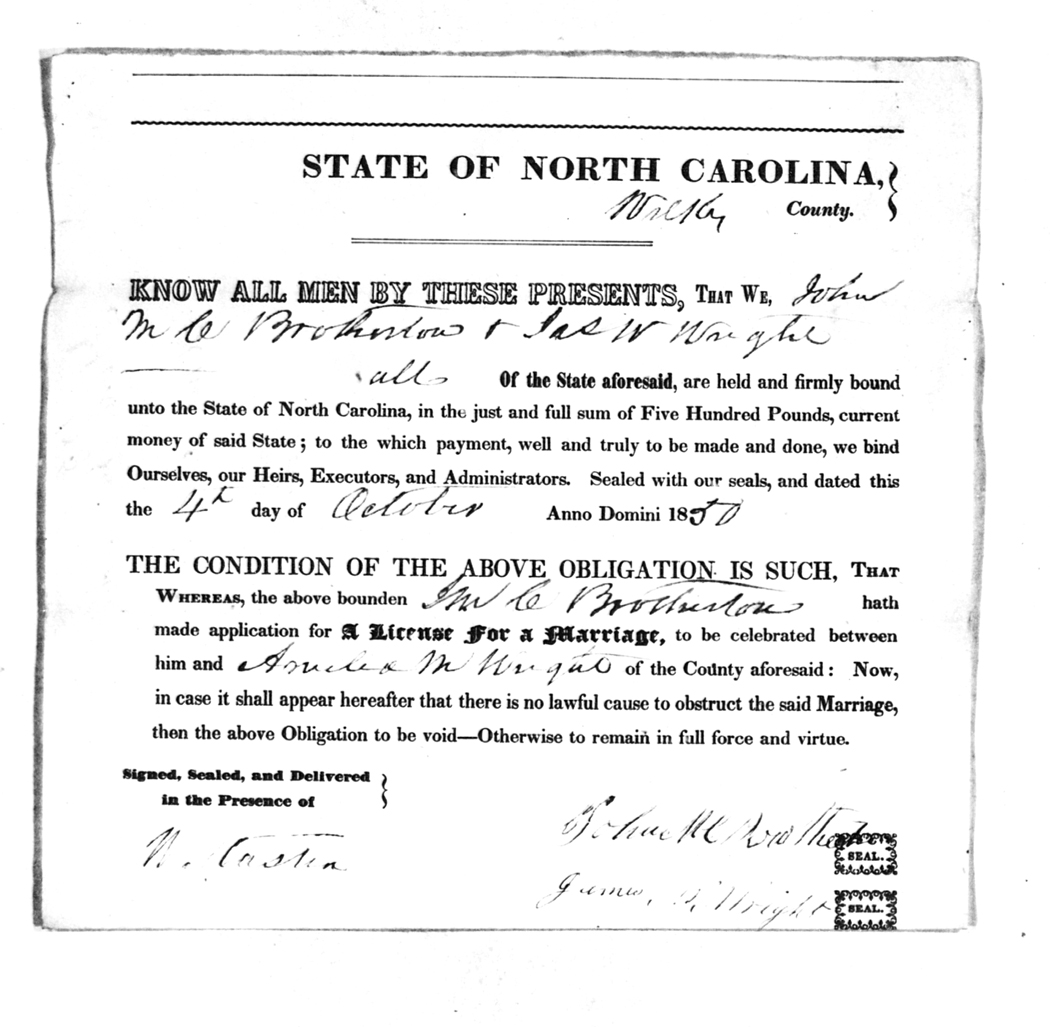 STATE OF NORTH CAROLINA,
Wilkes County.
KNOW ALL MEN BY THESE PRESENTS, THAT WE, John
M C Brotherton & Jas W Wright
all Of the State aforesaid, are held and firmly bound
unto the State of North Carolina, in the just and full sum of Five Hundred Pounds, current
money of said State; to the which payment, well and truly to be made and done, we bind
Ourselves, our Heirs, Executors, and Administrators. Sealed with our seals, and dated this
the 4th day of October Anno Domini 1850
THE CONDITION OF THE ABOVE OBLIGATION IS SUCH, THAT
WHEREAS, the above bounden C Brotherton hath
made application for A License For a Marriage, to be celebrated between
him and M Wright of the County aforesaid: Now,
in case it shall appear hereafter that there is no lawful cause to obstruct the said Marriage,
then the above Obligation to be void—Otherwise to remain in full force and virtue.
Signed, Sealed, and Delivered
in the Presence of
John M C Brother
SEAL.
James Wright
SEAL.